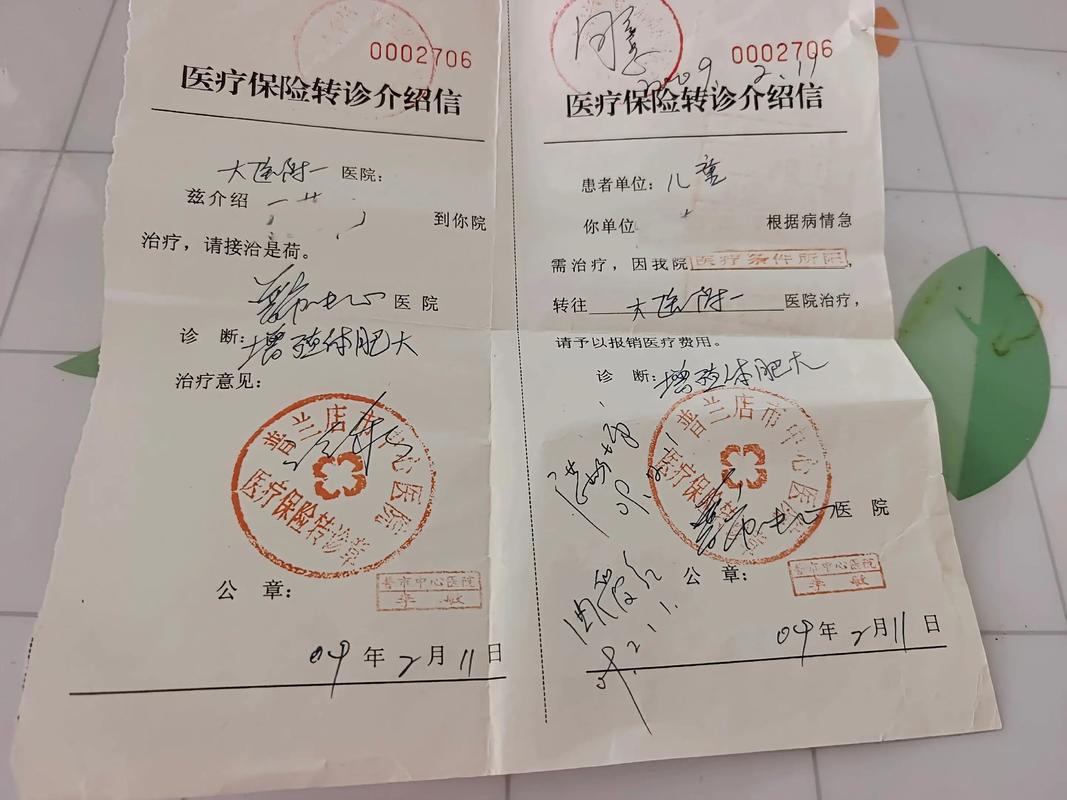 0002706
医疗保险转诊介绍信
大医附一 医院：
兹介绍 到你院
治疗，请接洽是荷。
普市中心 医院
诊 断：增殖体肥大
治疗意见：
普兰店市中心医院
医疗保险转诊章
公 章：
普市中心医院
李敏
09年2月11日
同意
0002706
2009.2.19
医疗保险转诊介绍信
患者单位：儿童
你单位 根据病情急
需治疗，因我院医疗条件所限，
转往 大医附一 医院治疗，
请予以报销医疗费用。
诊 断：增殖体肥大
普兰店市中心医院
医疗保险转诊章
普市中心医院
公 章：
普市中心医院
李敏
09年2月11日